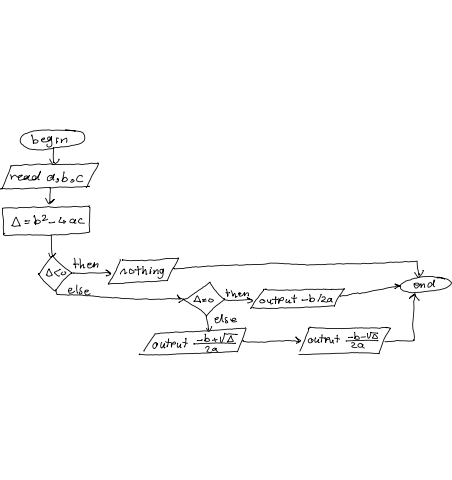 begin
read a,b,c
Δ=b²-4ac
Δ<0
then
nothing
else
Δ=0
then
output -b/2a
end
else
output -b+√Δ/2a
output -b-√Δ/2a